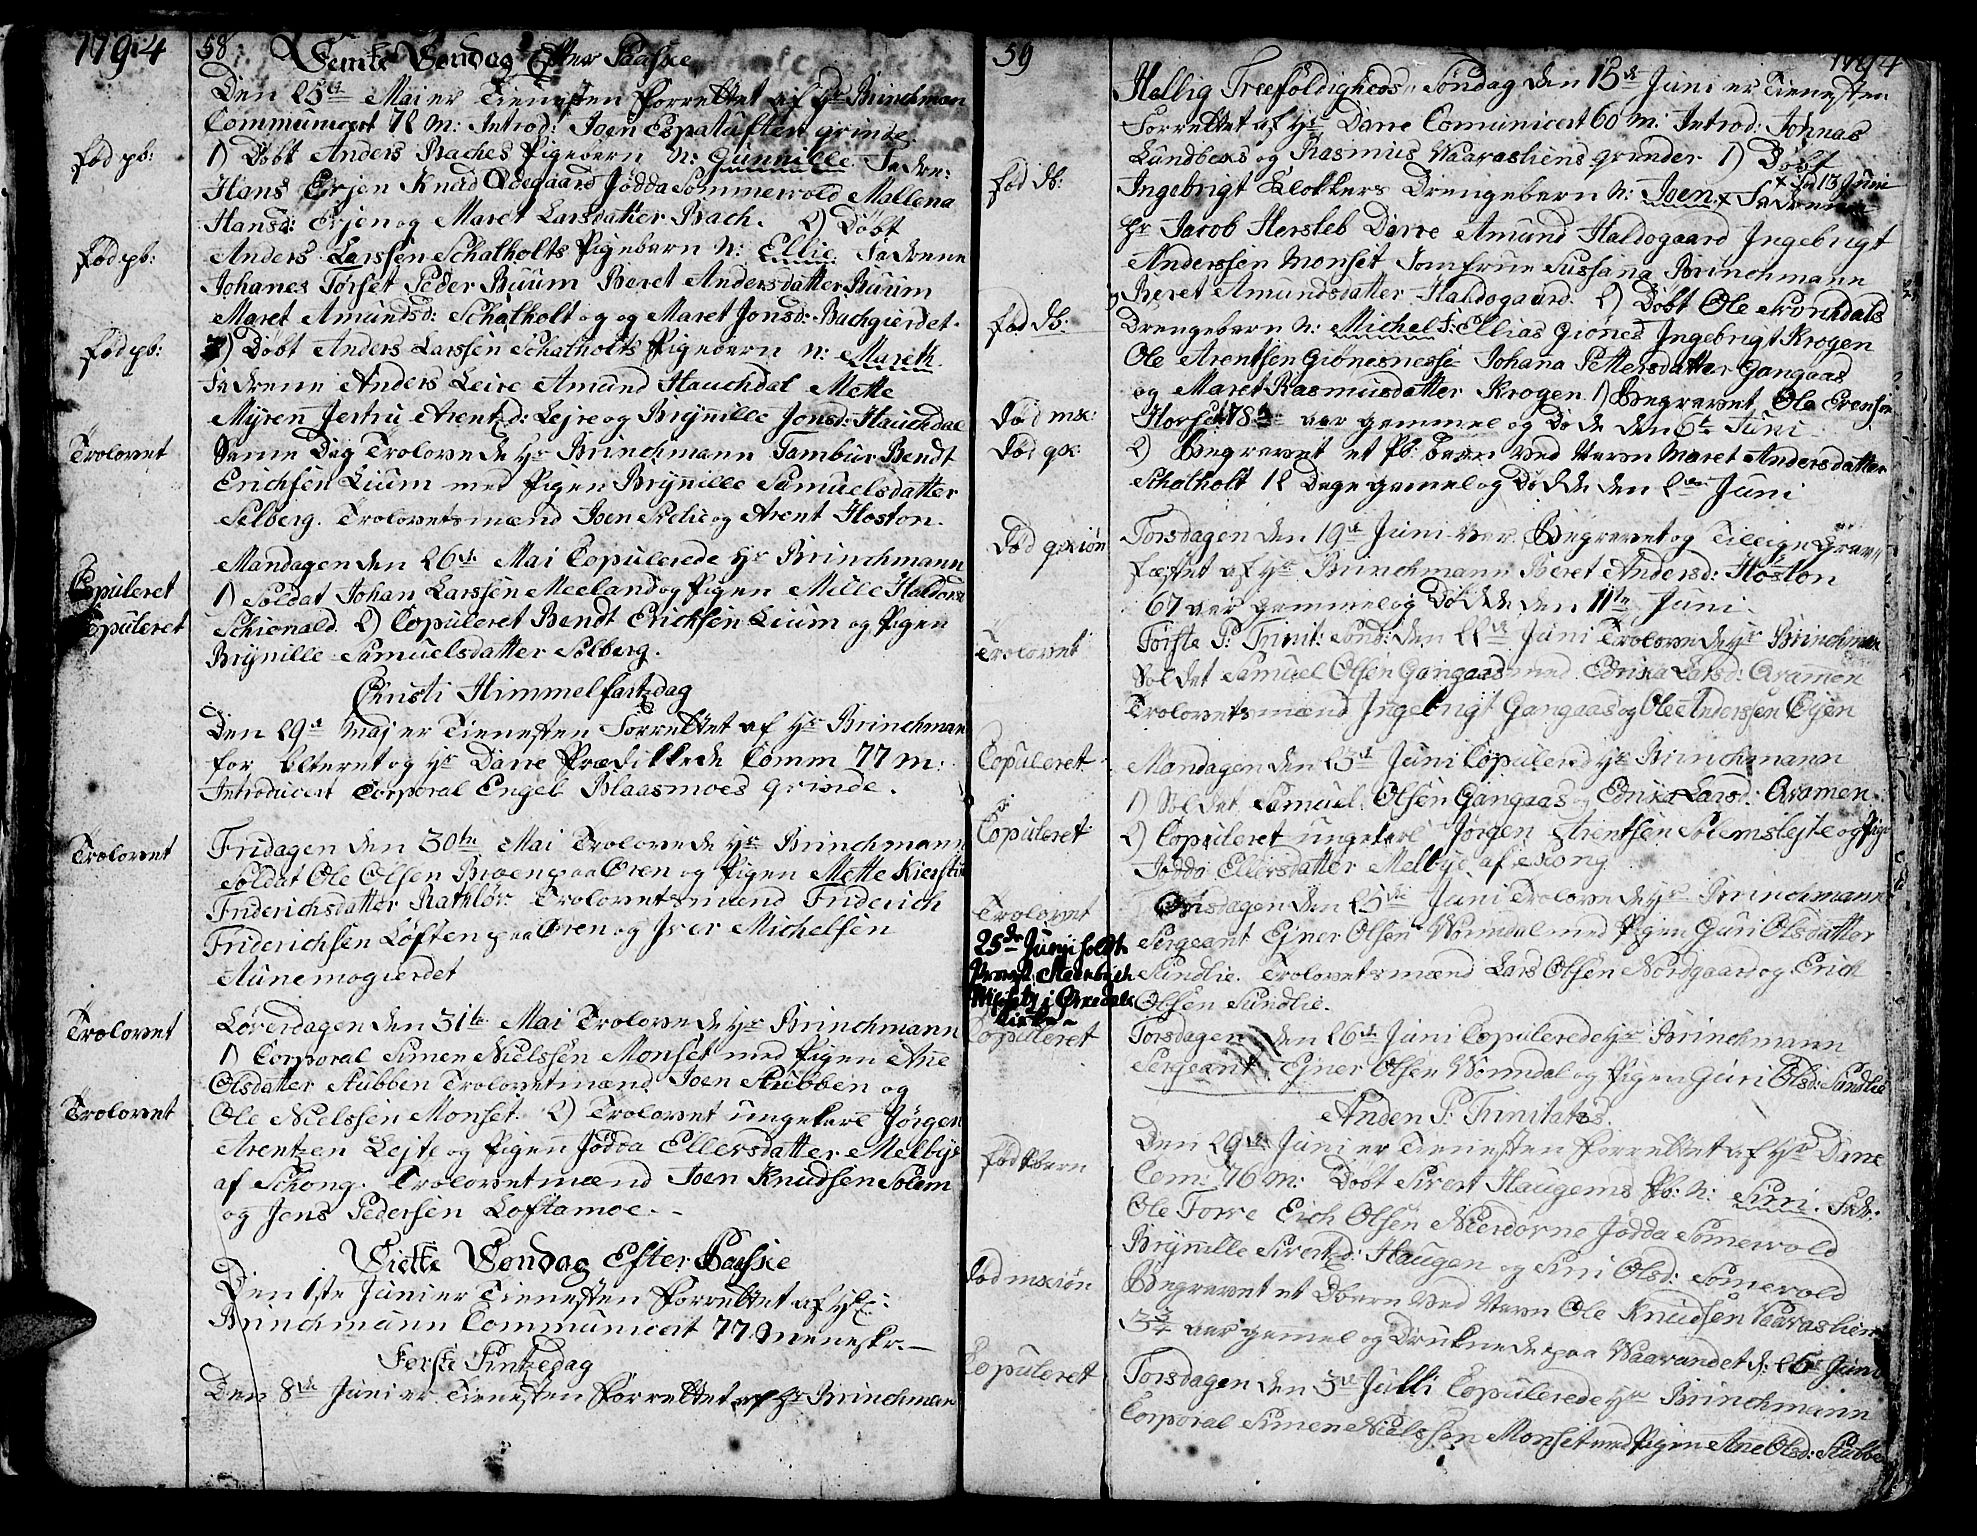 1794
58
Femte Søndag Efter Paaske
Den 25de Mai er Tienesten Forrettet af Hr Brinchman
Communicert 78 m: Introd: Joen Espataftens grinde
fød pb: 1) Døbt Anders Baches Pigebern N: Gunnille Fadre:
Hans Eyen Knud Ødegaard Jødda Sommervold Mallena
Hansd: Eyen og Maret Larsdatter Bach. 2) Døbt
fød pb: Anders Larssen Schalholts Pigebern N: Ellie. Fadrene
Johanes Torset Peder Buum Beret Andersdatter Buum
Maret Amundsd: Schalholt og og Maret Jonsd: Bachgierdet.
fød pb: 3) Døbt Anders Larssen Schalholts Pigebern N: Mareth
Fadrene Anders Leire Amund Hauchdal Mette
Myren Jertru Arentzd: Lejre og Brynille Jonsd: Hauchdal
Trolovet Samme Dag Trolovede Hr Brinchmann Tambur Bendt
Erichsen Lium med Pigen Brynille Samuelsdatter
Selberg. Trolovetsmænd Joen Sælie og Arent Hoston.
Mandagen den 26de Mai Copulerede Hr Brinchmann
Copuleret 1) Soldat Johan Larssen Meeland og Pigen Mille Haldors
Copuleret Schienald 2) Copuleret Bendt Erichsen Lium og Pigen
Brynille Samuelsdatter Solberg.
Christi Himmelfartzdag
Den 29de Maj er Tienesten Forrettet af Hr Brinchman
for Alteret og Hr Darre Prædikkede Comm 77 m:
Introducert Corporal Engel Blaasmoes grinde.
Trolovet Fridagen den 30te Mai Trolovede Hr Brinchmann
Soldat Ole Olsen Broen paa Øren og Pigen Mette Kierstin
Friderichsdatter Rathlør Trolovetsmænd Friderich
Friderichsen Løften paa Øren og Iver Michelsen
Aunemogierdet
Trolovet Løverdagen den 31te Mai Trolovede Hr Brinchmann
1) Corporal Simen Nielssen Monset med Pigen Ane
Olsdatter Stubben Trolovetmænd Joen Stubben og
Trolovet Ole Nielssen Monset. 2) Trolovet ungekarl Jørgen
Arentzen Lejte og Pigen Jødda Ellersdatter Melbye
af Schong. Trolovetmænd Joen Knudsen Solem
og Jens Pedersen Loftamoe.
Siette Søndag Efter Paaske
Den 1ste Juni er Tienesten Forrettet af Hr:
Brinchmann Communicert 77 Meneskr.
Første Pintzedag
Den 8de Juni er Tienesten Forrettet af Hr Brinchman
59
1794
Hellig Treefoldigheds Søndag den 15de Juni er Tienesten
Forrettet af Hr Darre Comunicert 60 m: Introd: Johnas
Lundbers og Rasmus Vaarasliens grinder. 1) Døbt
x fød 13 Juni
fød db: Ingebrigt Klokkers Drengebern N: Joen x Fadrene
Hr Jacob Hersleb Darre Amund Haldogaard Ingebrigt
Anderssen Monset Jomfrue Sussana Brinchmann
Beret Amundsdatter Haldogaard. 2) Døbt Ole Svorkdals
fød db: Drengebern N: Michel F: Ellias Giones Ingebrigt Krogen
Ole Arentsen Gionesnesse Johana Pettersdatter Gangaas
og Maret Rasmusdatter Krogen. 1) Begravet Ole Erensen
Død mk: Horset 78 aar gammel og Døde den 6te Juni
Død qk: 2) Begravet et Pb: Bern ved Navn Maret Andersdatter
Scholholt 12 Dage gamel og Døde den 2den Juni
Død qkiøn Torsdagen den 19de Juni var Begravet og Tilleigne Grav
fæstet af Hr Brinchmann Beret Andersd: Hoston
67 aar gammel og Døde den 11te Juni
Trolovet Første P: Trinit: Sønd: den 22de Juni Trolovede Hr Brinchman
Soldat Samuel Olsen Gangaas med Edrika Larsd: Aramen
Trolovetsmænd Ingebrigt Gangaas og Ole Anderssen Eyen
Copuleret Mandagen den 23de Juni Copulered Hr Brinchmann
1) Soldat Samuel Olsen Gangaas og Edrika Larsd: Aramen.
Copuleret 2) Copuleret ungekarl Jørgen Arentsen Solemslejte og Pige
Jødda Ellersdatter Melbye af Skong
Trolovet Onsdagen den 25de Juni Trolovede Hr Brinchmann
Sergeant Ejner Olsen Wormdal med Pigen Guri Olsdatter
Sundlie. Trolovetsmænd Lars Olsen Nordgaard og Erich
Olsen Sundlie.
25de Junii holdt
Provst Steenbuch
Visitatz i Ørkedals
Kirke
Copuleret Torsdagen den 26de Juni Copulerede Hr Brinchmann
Sergeant Ejner Olsen Wormdal og Pigen Guri Olsd: Sundlie
Anden P: Trinitatis
Den 29de Juni er Tienesten Forrettet af Hr Darre
fød Pbern Com: 76 m: Døbt Sivert Haugems Pb: N: Siri. Fadr:
Ole Forre Erich Olsen Nierdorne Jødda Somervold
Brynille Sivertzd: Haugen og Siri Olsd: Somervold
Død mkiøn Begravet et Dbern ved Navn Ole Knudsen Vaaraslien
3 3/4 aar gammel og Druknede paa Vaavandet d: 26de Juni
Copuleret Torsdagen den 3de Julli Copulerede Hr Brinchmann
Corporal Simen Nielssen Monset med Pigen Ane Olsd: Stubbe